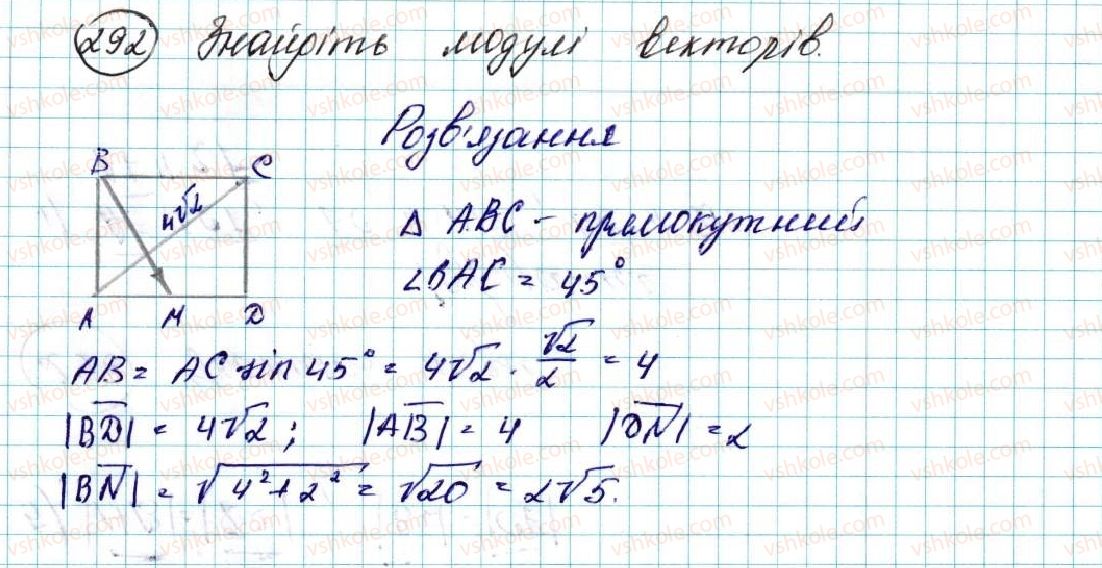 292 Знайдіть модулі векторів.
Розв'язання
B C
4√2
A M D
△ ABC - прямокутний
∠BAC = 45°
AB = AC sin 45° = 4√2 · √2/2 = 4
|BD| = 4√2; |AB| = 4 |DN| = 2
|BN| = √4²+2² = √20 = 2√5.